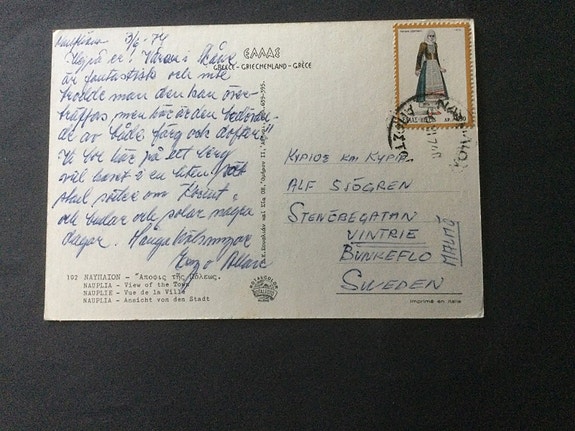 Nauplion 3/6-74
Hejpå er! Våren i Skåne
är fantastisk och inte
trodde man den kan över-
träffas men här är den
de av både färg och dofter!
Vi bor här på ett berg
vid havet i en liten
stad söder om Korint,
och badar och solar några
dagar. Många hälsningar
ΕΛΛΑΣ
GREECE - GRIECHENLAND - GRÈCE
ΚΥΡΙΟΣ ΚΑΙ ΚΥΡΙΑ
ALF SJÖGREN
STENÖREGATAN
VINTRIE
BUNKEFLO
MALMÖ
SWEDEN
102 ΝΑΥΠΛΙΟΝ - Ἄποψις τῆς Πόλεως.
NAUPLIA - View of the Town
NAUPLIE - Vue de la Ville
NAUPLIA - Ansicht von den Stadt
Imprimé en Italie